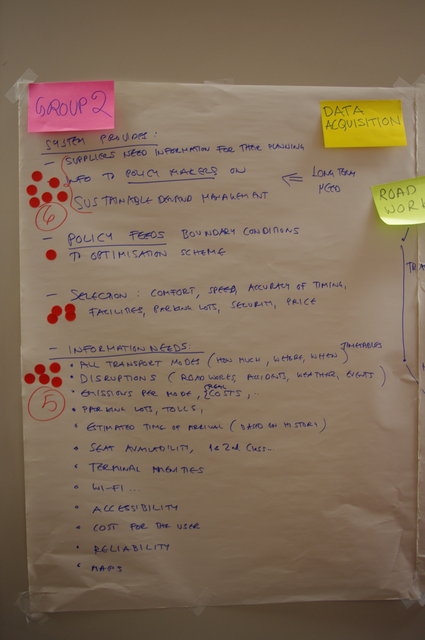 GROUP 2
DATA
ACQUISITION
SYSTEM PROVIDES:
- SUPPLIERS NEED INFORMATION FOR THEIR PLANNING
INFO TO POLICY MAKERS ON
SUSTAINABLE DEMAND MANAGEMENT
6
LONG TERM
NEED
ROAD
WORK
- POLICY FEEDS BOUNDARY CONDITIONS
TO OPTIMISATION SCHEME
- SELECTION: COMFORT, SPEED, ACCURACY OF TIMING,
FACILITIES, PARKING LOTS, SECURITY, PRICE
TRA
- INFORMATION NEEDS:
• ALL TRANSPORT MODES (HOW MUCH, WHERE, WHEN) TIMETABLES
• DISRUPTIONS (ROAD WORKS, ACCIDENTS, WEATHER, EVENTS)
• EMISSIONS PER MODE, (REAL) COSTS, ..
5
• PARKING LOTS, TOLLS,
• ESTIMATED TIME OF ARRIVAL (BASED ON HISTORY)
• SEAT AVAILABILITY, 1st 2nd CLASS...
• TERMINAL AMENITIES
• WI-FI ...
• ACCESSIBILITY
• COST FOR THE USER
• RELIABILITY
• MAPS